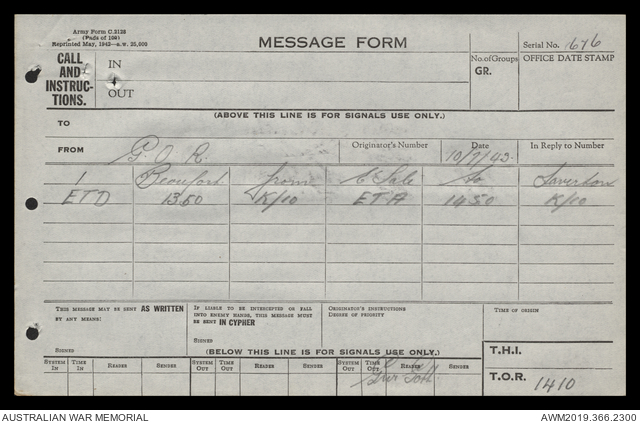 Army Form C.2128
(Pads of 100)
Reprinted May, 1942—a.w. 25,000
MESSAGE FORM
Serial No. 676
CALL AND INSTRUCTIONS.
IN
OUT
No. of Groups
GR.
OFFICE DATE STAMP
(ABOVE THIS LINE IS FOR SIGNALS USE ONLY.)
TO
FROM G.O.R.
Originator's Number
Date 10/7/43.
In Reply to Number
1 Beaufort from E Sale to Laverton
ETD 1350 K/10 ETA 1450 K/10
THIS MESSAGE MAY BE SENT AS WRITTEN BY ANY MEANS:
IF LIABLE TO BE INTERCEPTED OR FALL INTO ENEMY HANDS, THIS MESSAGE MUST BE SENT IN CYPHER
ORIGINATOR'S INSTRUCTIONS
DEGREE OF PRIORITY
TIME OF ORIGIN
SIGNED
SIGNED
(BELOW THIS LINE IS FOR SIGNALS USE ONLY.)
T.H.I.
SYSTEM IN TIME IN READER SENDER SYSTEM OUT TIME OUT READER SENDER SYSTEM OUT TIME OUT READER SENDER
T.O.R. 1410
AUSTRALIAN WAR MEMORIAL
AWM2019.366.2300